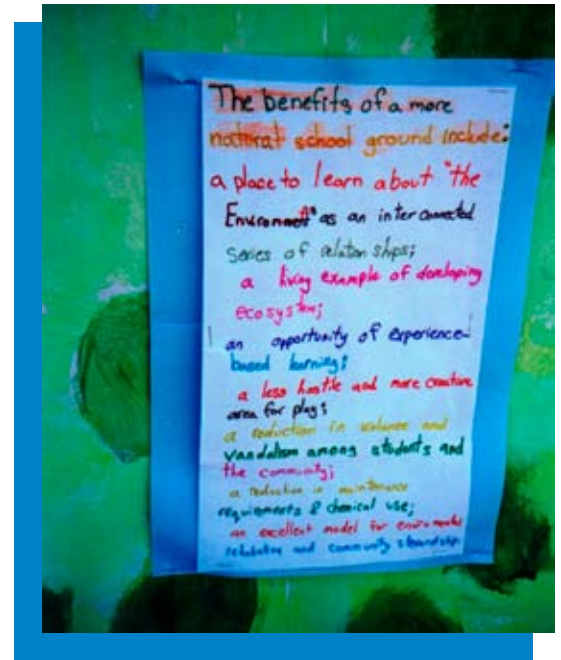 The benefits of a more
natural school ground include:
a place to learn about "the
Environment" as an interconnected
series of relationships;
a living example of developing
ecosystems;
an opportunity of experience-
based learning;
a less hostile and more creative
area for play;
a reduction in violence and
vandalism among students and
the community;
a reduction in maintenance
requirements & chemical use;
an excellent model for
and community